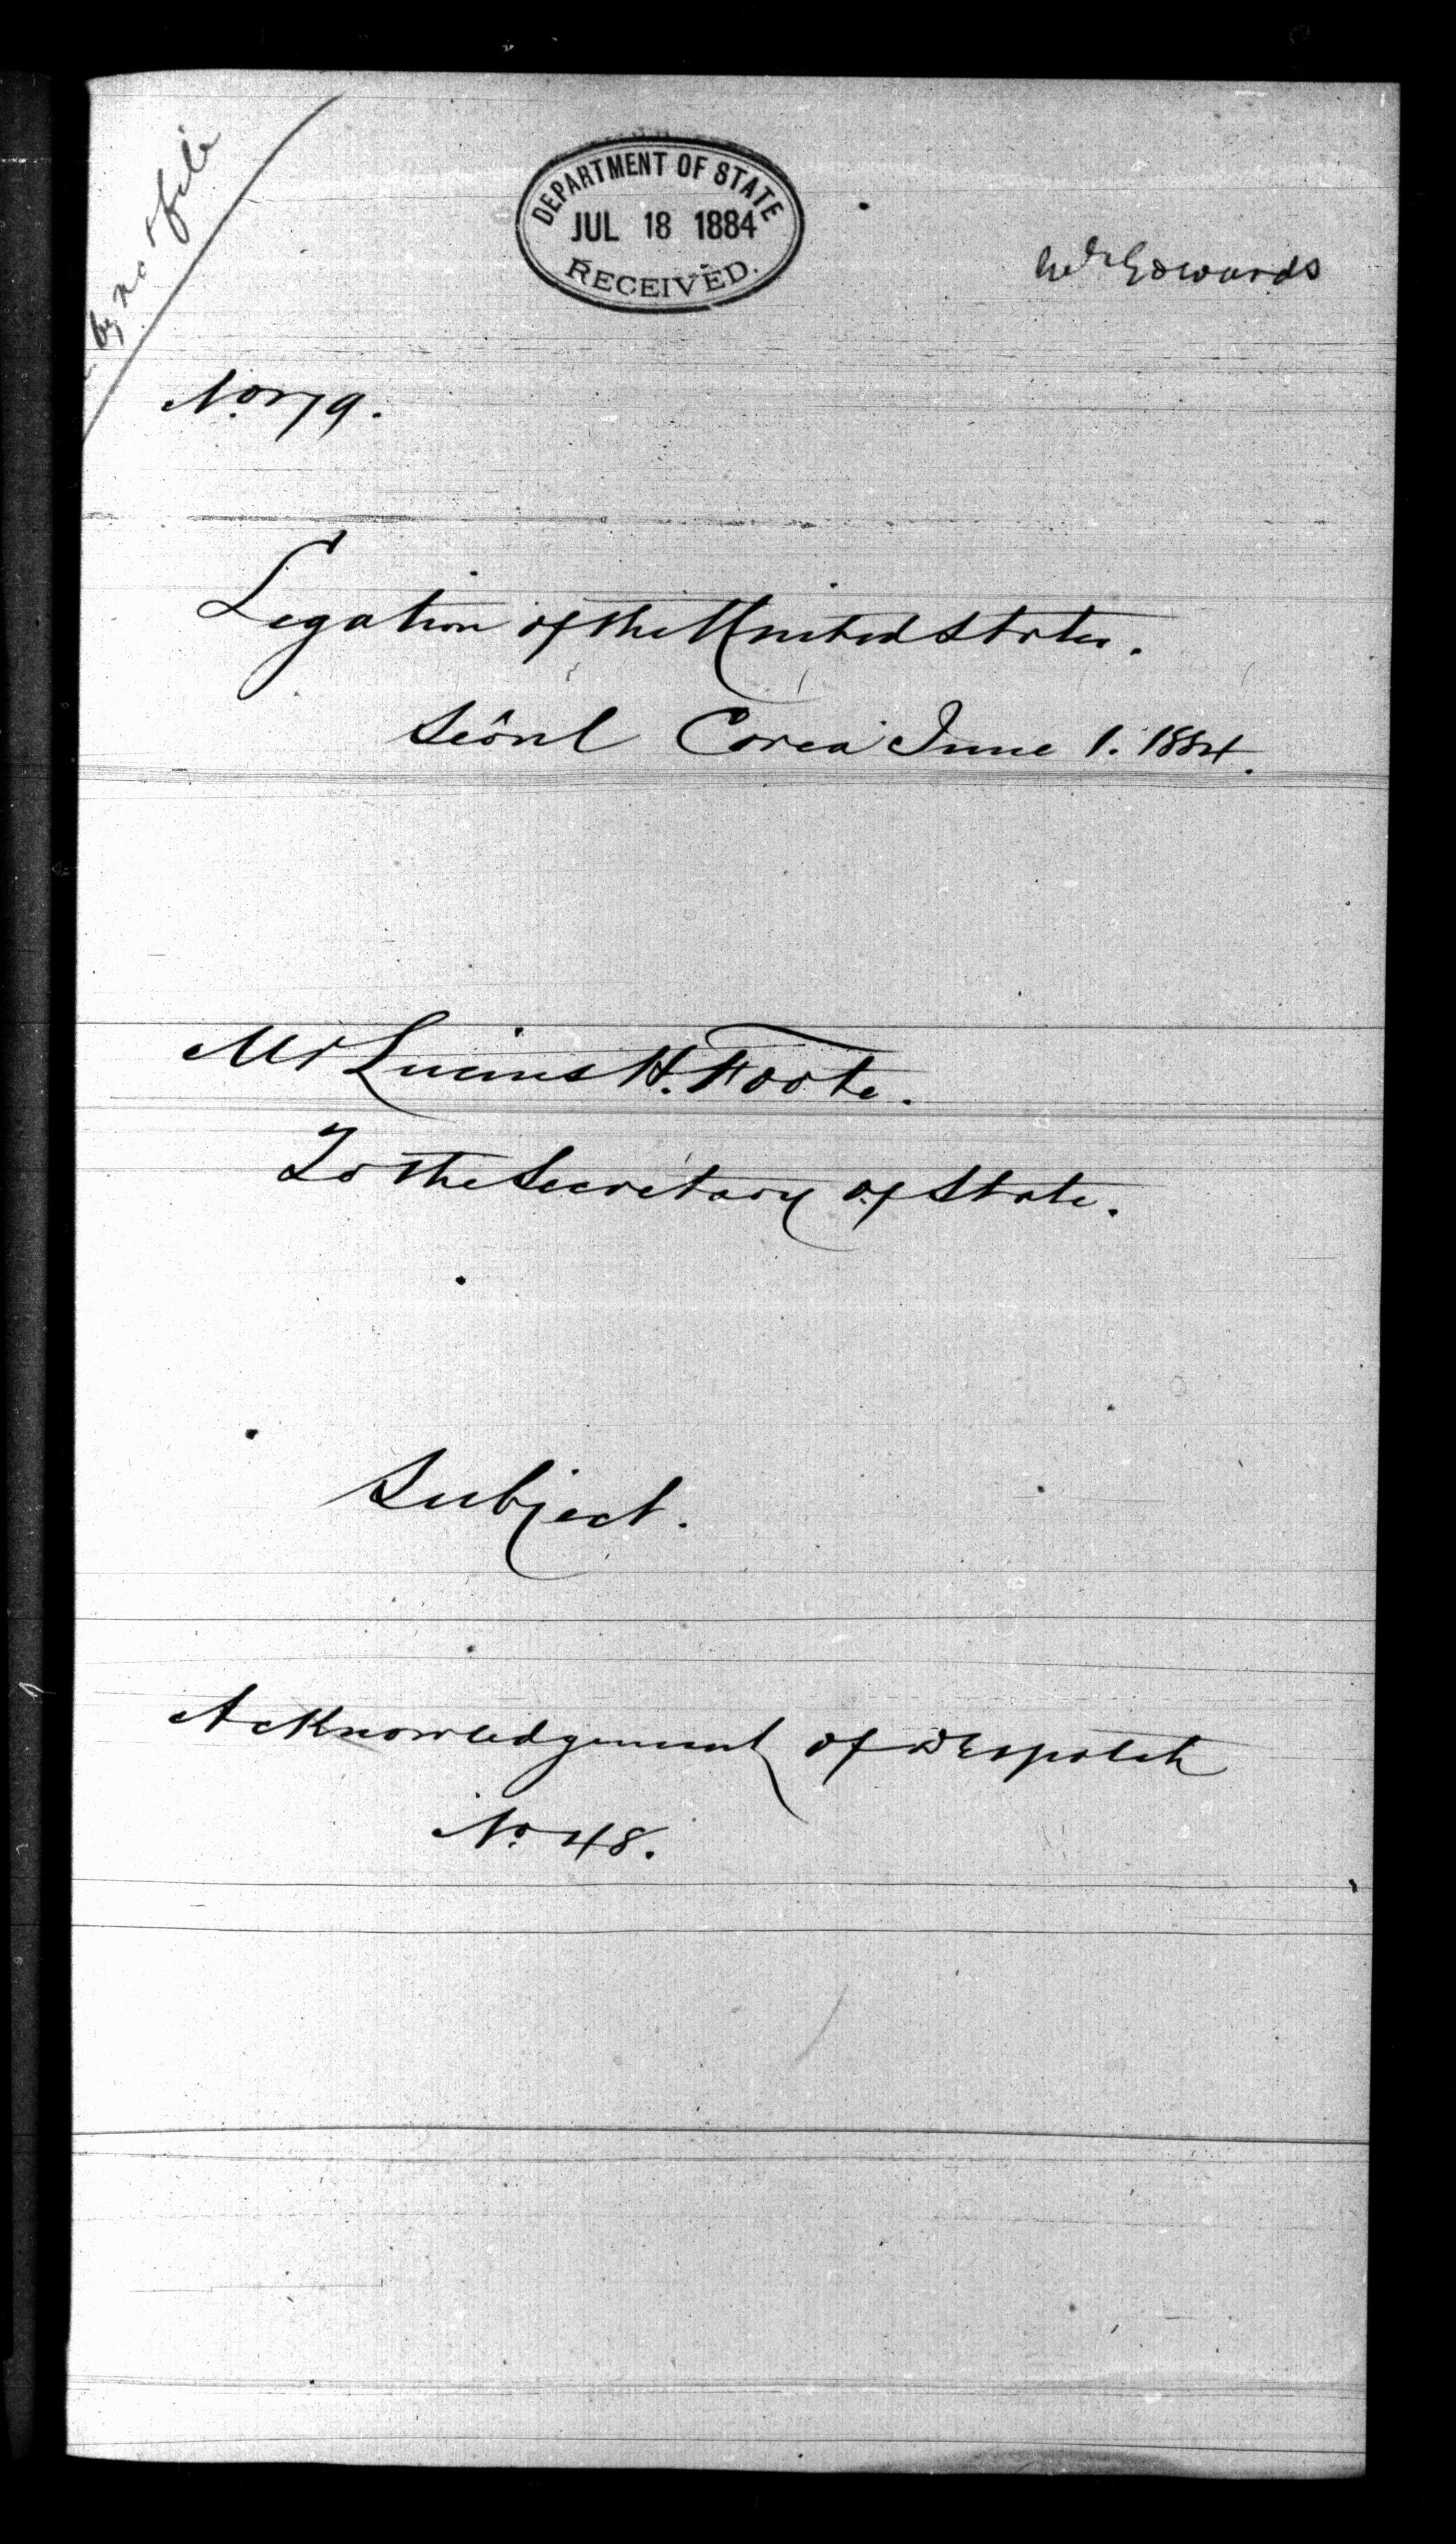 by no & file
DEPARTMENT OF STATE
JUL 18 1884
RECEIVED.
Mr Edwards
No. 79.
Legation of the United States.
Seôul Corea June 1. 1884.
Mr Lucius H. Foote.
To the Secretary of State.
Subject.
Acknowledgement of Despatch
No 48.